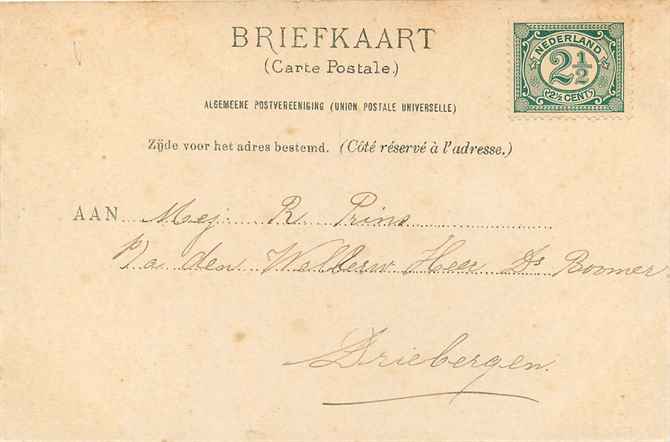 BRIEFKAART
(Carte Postale.)
NEDERLAND
2½
2½ CENT
ALGEMEENE POSTVEREENIGING (UNION POSTALE UNIVERSELLE)
Zijde voor het adres bestemd. (Côté réservé à l'adresse.)
AAN Mej. R Prins
p/a den Wellerw Heer Ds Boomer
Driebergen.